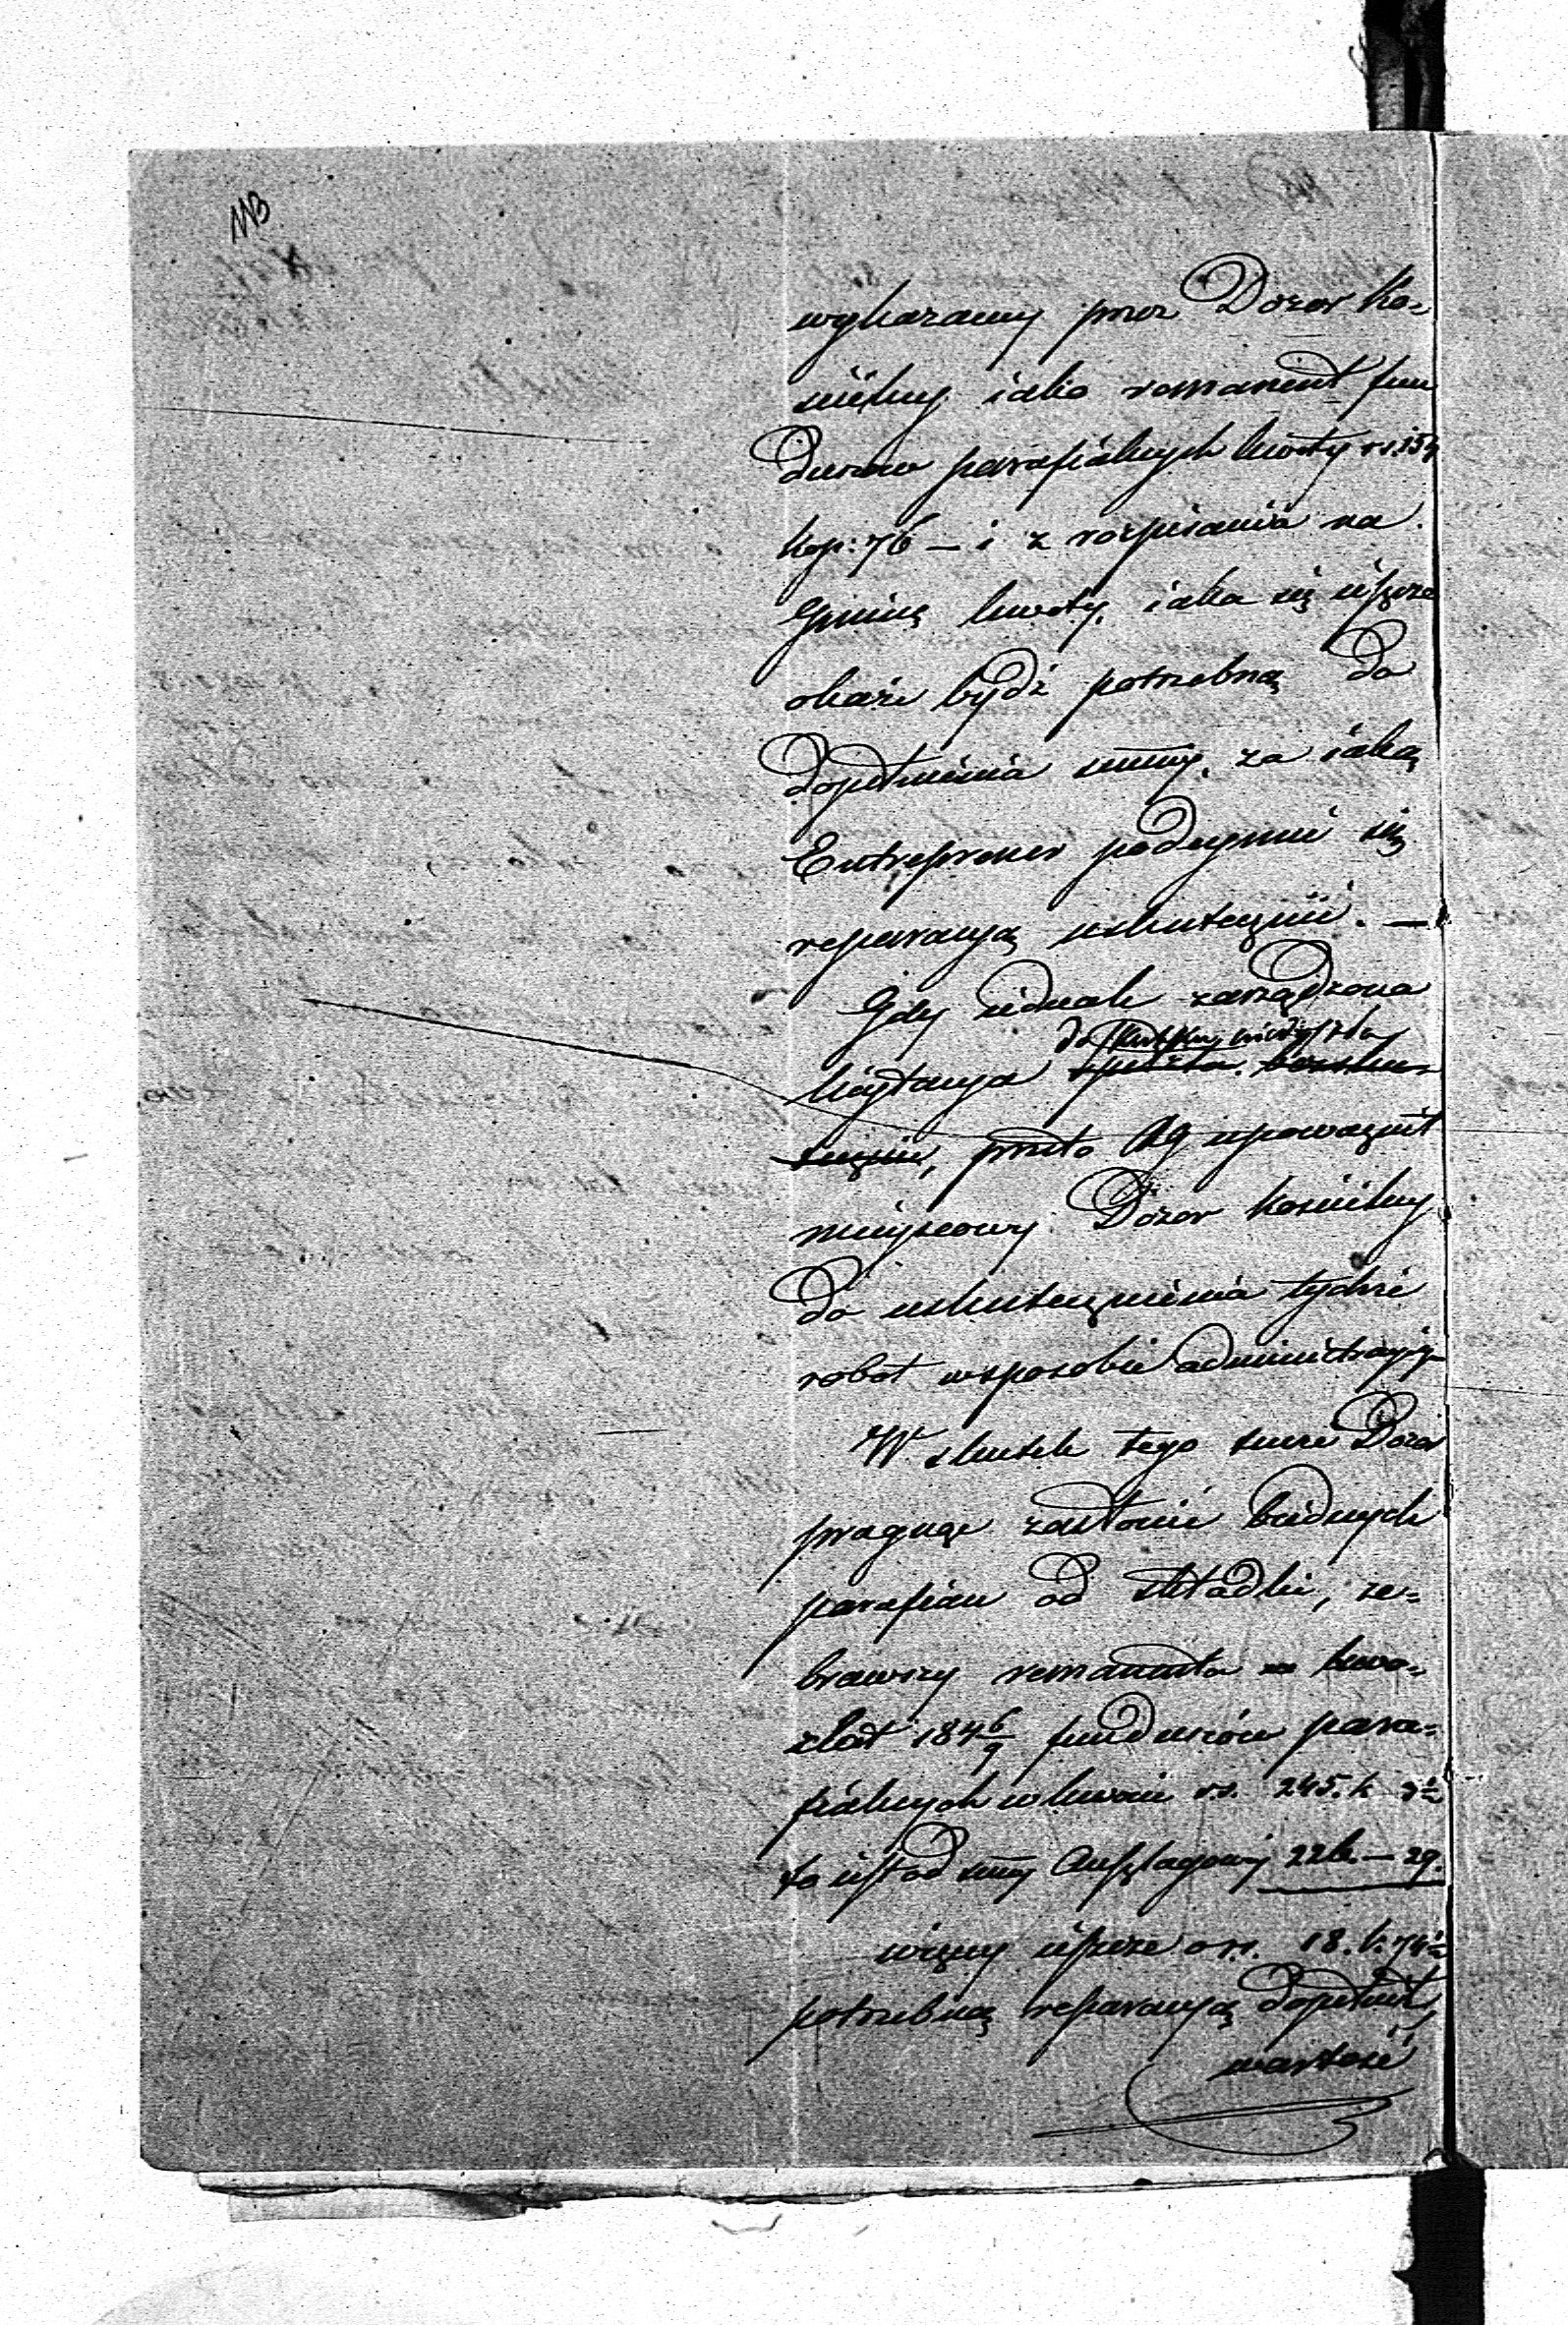 113
wykazany przez Dozor Ko=
ścielny iako romanent fun
duszow parafialnych kwoty rs. 154
kop: 76 – i z rozpisania na
Gminę kwoty, iaka się ieszcze
okaże bydź potrzebną do
dopełnienia summy, za iaką
Entreprener podeymie się
reparacyą uskutecznić. —
Gdy iednak zarządzona
do skutku niedoszła
licytacya spełzła bezsku=
tecznie, przeto RG upoważnił
mieyscowy Dozor Kościelny
do uskutecznienia tychże
robot w sposobie administracyi
W skutek tego tenże Dozor
pragnąc zasłonić biednych
parafian od składki, ze=
brawszy remanenta kwo=
z lat 184 6/9 funduszów para=
fialnych w kwocie rs. 245. k 3½
to iest od summy Anszlagowej 226. – 29.
więcey ieszcze o rs. 18. k. 74½
potrzebną reparacyą dopełnił,
wartość